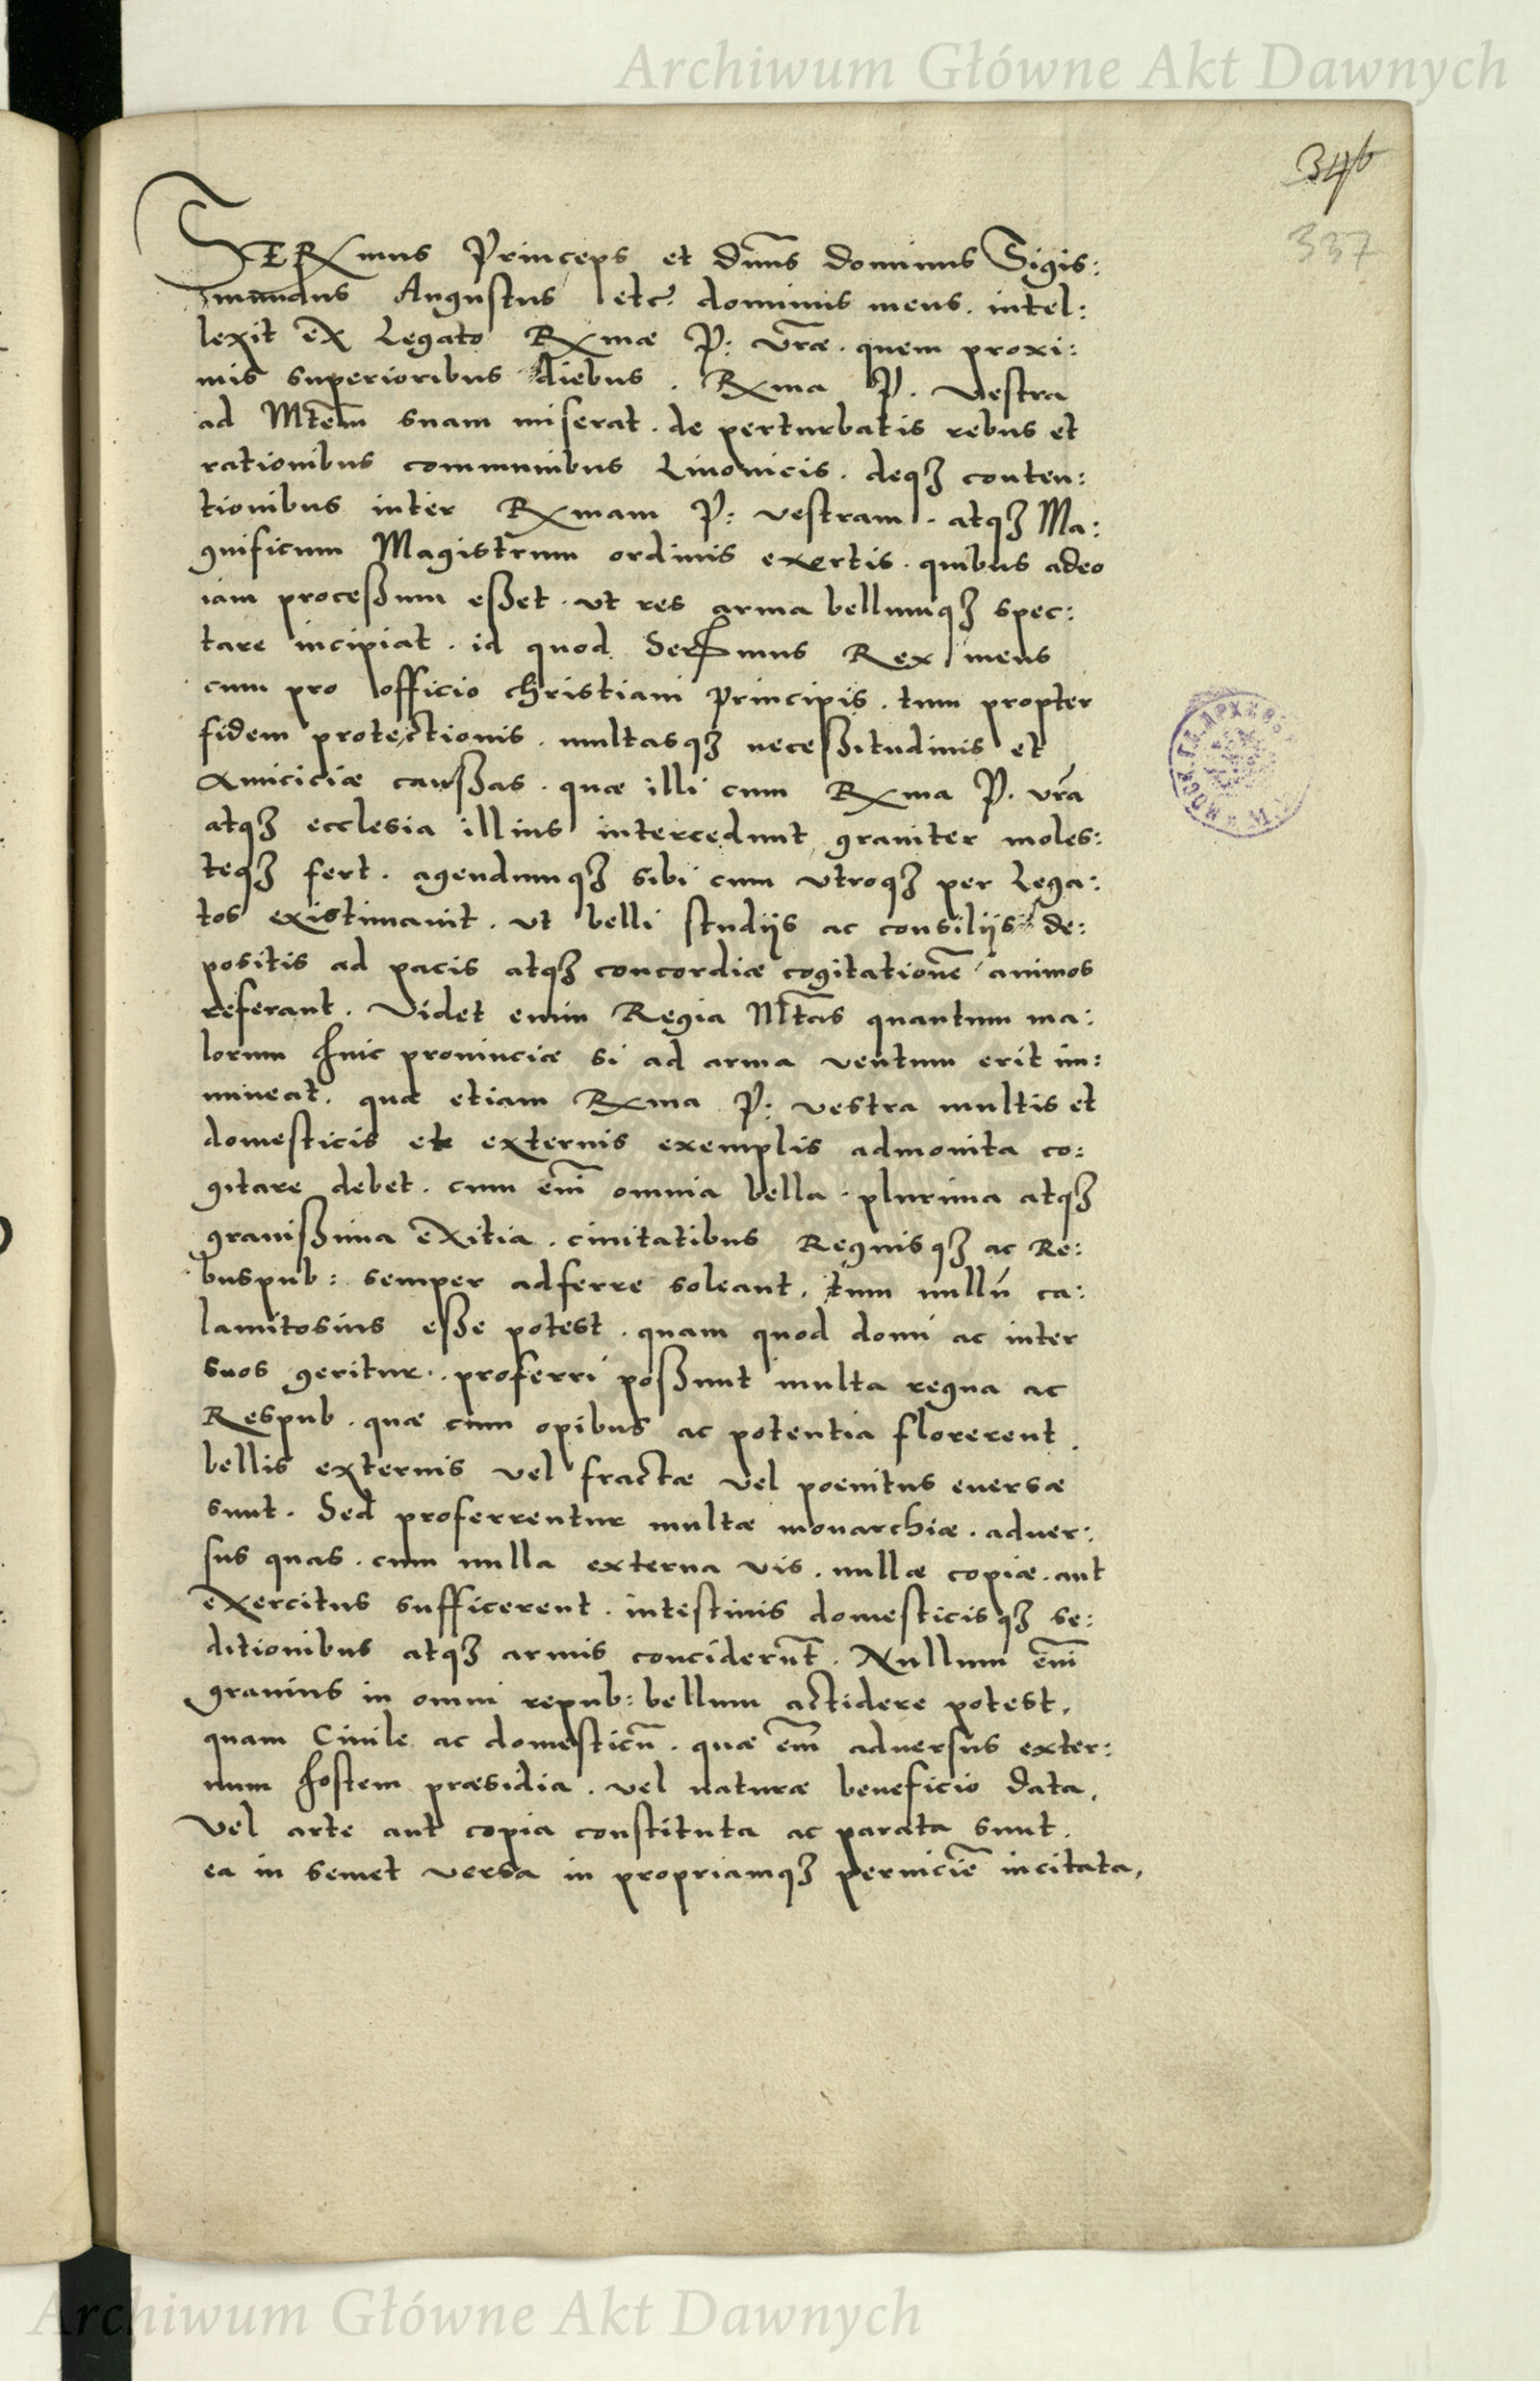 Archiwum Główne Akt Dawnych
346
337
SERxmus Princeps et Dnus dominus Sigis:
mundus Augustus etc. dominus meus. intel:
lexit ex Legato Rxmæ P: vræ. quem proxi:
mis superioribus diebus. Rxma P. Vestra
ad Mtem suam miserat. de perturbatis rebus et
rationibus communibus Liuonicis. deqȝ conten:
tionibus inter Rxmam P: vestram. atqȝ Ma:
gnificum Magistrum ordinis exertis. quibus adeo
iam proceßum eßet. vt res arma bellumqȝ spec:
tare incipiat. id quod Serßmus Rex meus
cum pro officio christiani principis. tum propter
fidem protectionis. multasqȝ neceßitudinis et
Amiciciæ caußas. quæ illi cum Rxma P. vra
atqȝ ecclesia illius intercedunt grauiter moles:
teqȝ fert. agendumqȝ sibi cum vtroqȝ per Lega:
tos existimauit. vt belli studijs ac consilijs de:
positis ad pacis atqȝ concordiæ cogitationē animos
referant. Videt enim Regia Mtas quantum ma:
lorum huic prouinciæ si ad arma ventum erit im:
mineat. quæ etiam Rxma P: vestra multis et
domesticis et externis exemplis admonita co:
gitare debet. cum eni omnia bella. plurima atqȝ
grauißima exitia. ciuitatibus Regnisqȝ ac Re:
buspub: semper adferre soleant. tum nullū ca:
lamitosius eße potest. quam quod domi ac inter
suos geritur. proferri poßunt multa regna ac
Respub. quæ cum opibus ac potentia florerent.
bellis externis vel fractæ vel poenitus euersæ
sunt. Sed proferrentur multæ monarchiæ. aduer:
sus quas. cum nulla externa vis. nullæ copiæ. aut
exercitus sufficerent. intestinis domesticisqȝ se:
ditionibus atqȝ armis conciderūt. Nullum eni
grauius in omni repub: bellum accidere potest,
quam Ciuile ac domesticū. quæ em aduersus exter:
num hostem præsidia. vel naturæ beneficio data,
Vel arte aut copia constituta ac parata sunt.
ea in semet versa in propriamqȝ perniciē incitata,
Archiwum Główne Akt Dawnych